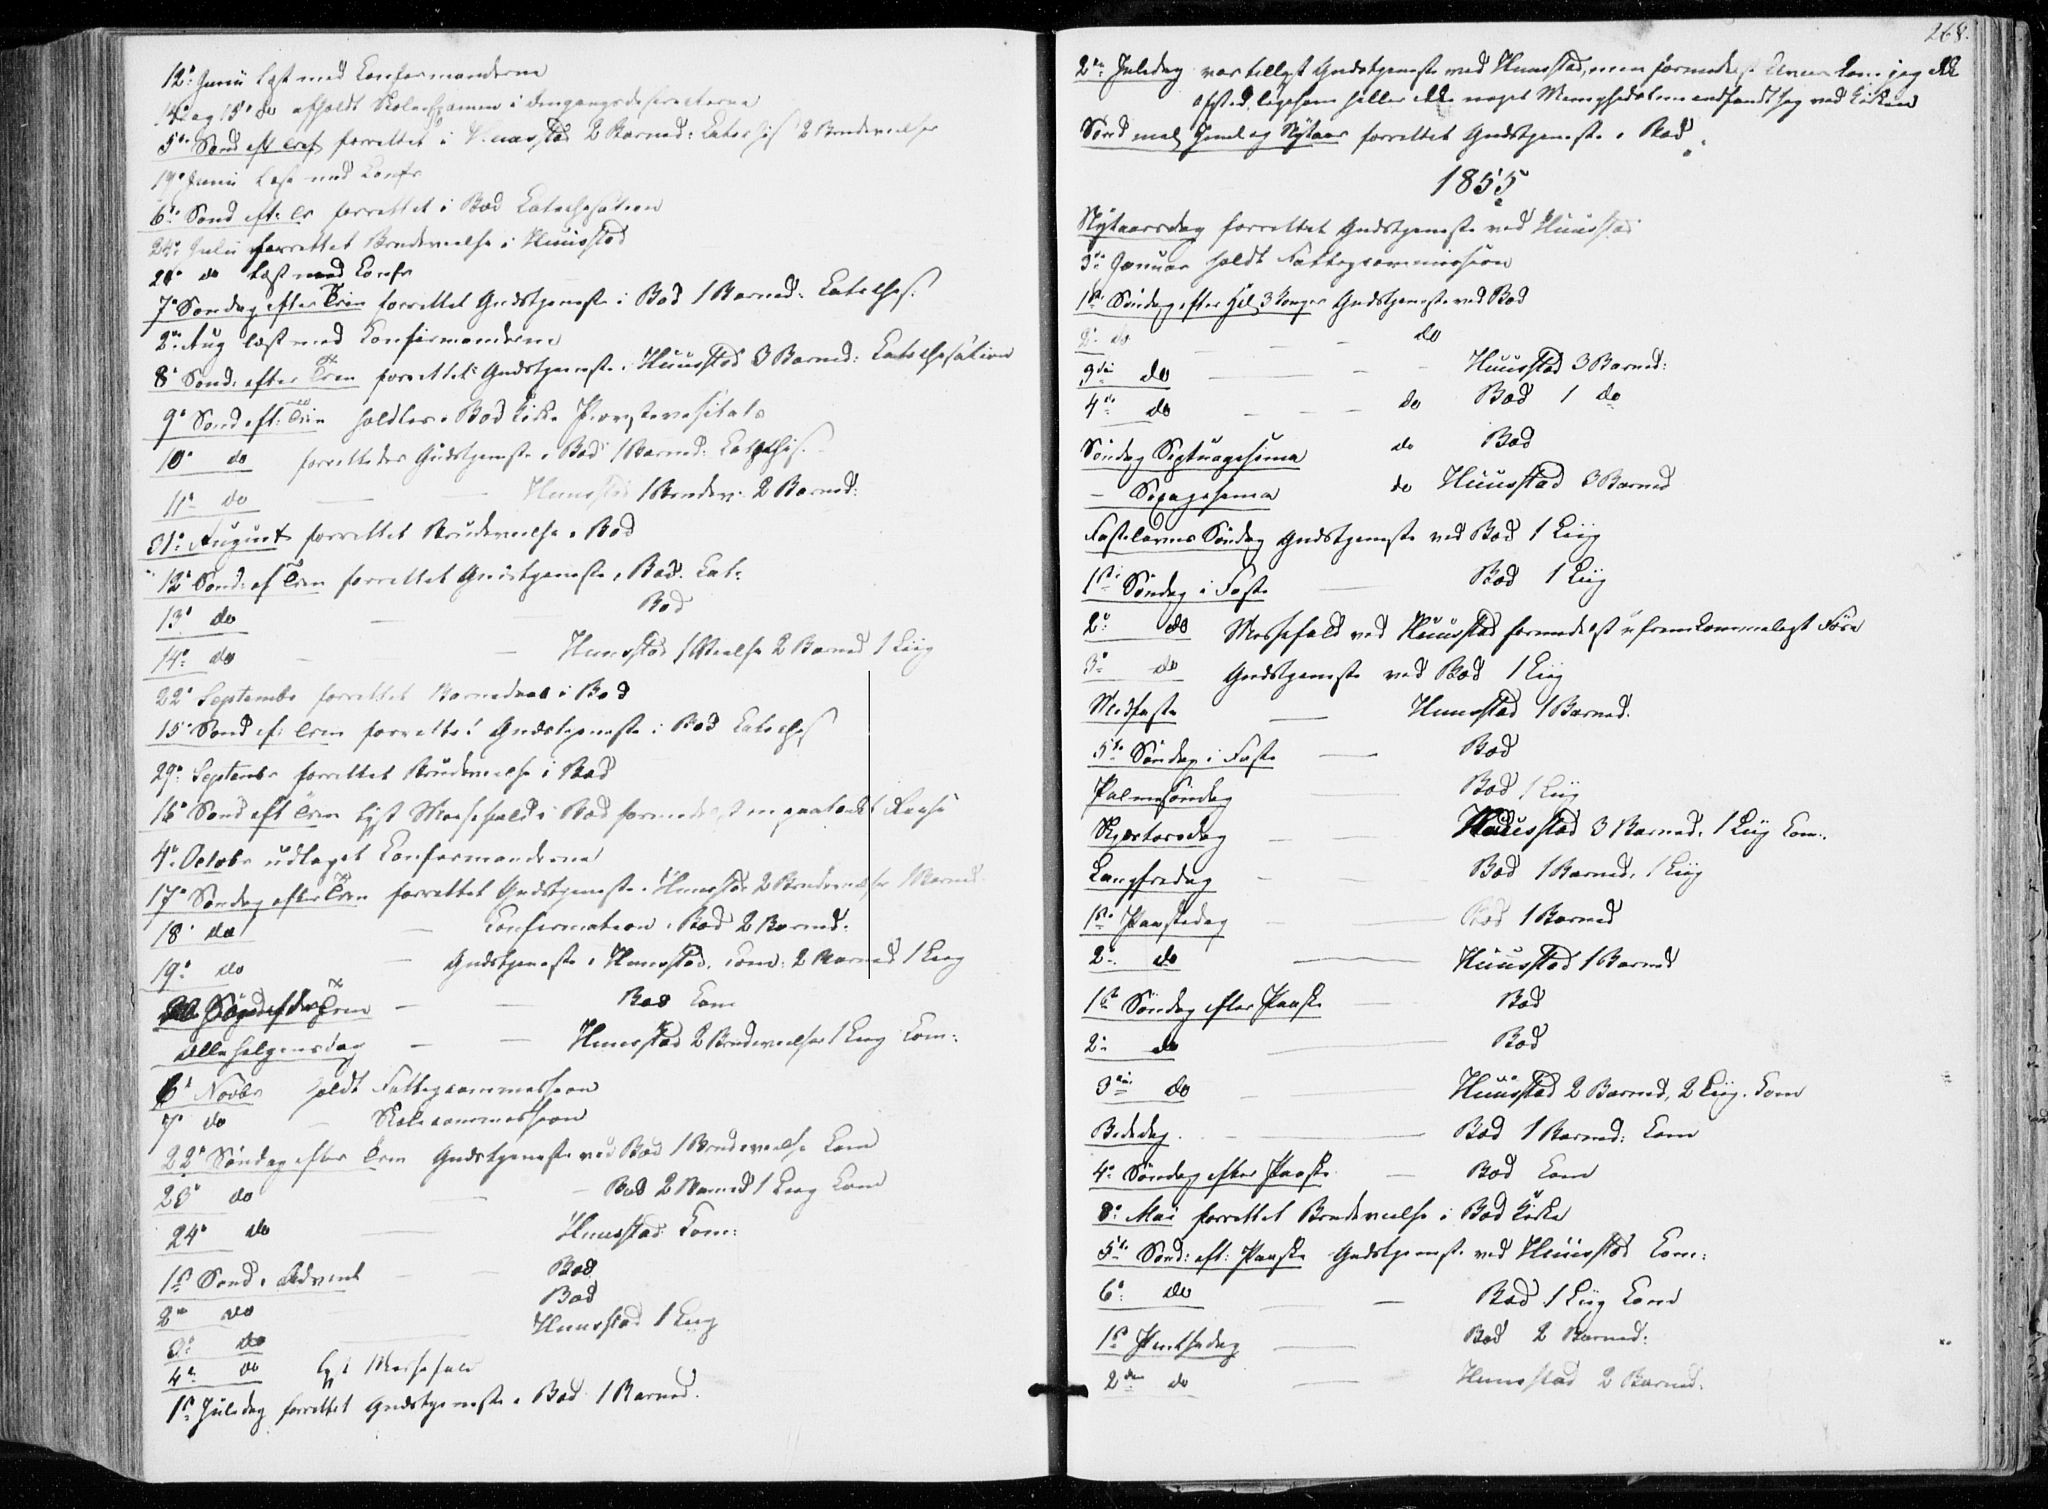 12te Junii læst med Confirmanderne
14 og 15de do afholdt Skoleexamen i
5te Sønd eft Tref forrettet i Huusstad 2 Barned: Catechis 2 Brudevielser
19de Junii læst med Confr
6te Sønd eft: Tr forrettet i Bod Catechisation
24de Julii forrettet Brudevielse i Huusstad
26de do læst med Confr
7de Søndag efter Trin forrettet Gudstjeneste i Bod 1 Barned: Cateches:
2den Aug læst med Confirmanderne
8de Sønd: efter Trin forrettet Gudstjeneste i Huusstad 3 Barned: Catechisation
9de Sønd eft: Trin holdtes i Bod Kirke Provstevisitats
10de do forrettedes Gudstjeneste i Bod 1 Barned: Catechis:
11te do — — Huusstad 1 Brudev: 2 Barned:
31te August forrettet Brudevielse i Bod
12te Sønd: ef Trin forrettet Gudstjeneste i Bod. Cat:
13de do — Bod
14de do — — Huusstad 1 Vielse 2 Barned 1 Liig
22de Septembr forrettet Barnedaab i Bod
15de Sønd ef: Trin forrettet Gudstjeneste i Bod Cateches
29de Septembr forrettet Brudevielse i Bod
16de Sønd eft Trin lyst Messefald i Bod formedelst en paatænkt Reise
4de Octobr udtaget Confirmanderne
17de Søndag efter Trin forrettet Gudstjeneste i Huusstad 2 Brudevielser 1 Barned
18de do — Confirmation i Bod 2 Barned:
19de do — Gudstjeneste i Huusstad. Com: 2 Barned 1 Liig
Trin — — Bod Com
Allehelgensdag — — Huusstad 2 Brudevielser 1 Liig Com:
6te Novbr holdt Fattigcommission
7de do — Skolecommission
22de Søndag efter Trin Gudstjeneste ved Bod 1 Brudevielse Com
23de do — — Bod 2 Barned 1 Liig Com
24de do — Huusstad Com:
1ste Sønd i Advent — — Bod
2den do Bod
3de do — Huusstad 1 Liig
4de do lyst Messefald
1ste Juledag forrettet Gudstjeneste i Bod 1 Barned.
268.
2den Juledag var tillyst Gudstjeneste ved Huusstad, men formedelst kom jeg ikke
afsted, ligesom heller ikke noget Menighedslem indfandt sig ved Kirken
Sønd mel Juul og Nytaar forrettet Gudstjeneste i Bod.
1855
Nytaarsdag forrettet Gudstjeneste ved Huusstad
3die Januar holdt Fattigcommission
1ste Søndag efter Hel 3 Konger Gudstjeneste ved Bod
2de do — — — do
3die do — — — Huusstad 3 Barned:
4de do — — — do Bod 1 do
Søndag Septuagesima do Bod
— Sexagesima do Huusstad 3 Barned
Fastelavns Søndag Gudstjeneste ved Bod 1 Liig
1ste Søndag i Faste — Bod 1 Liig
2de do Messefald ved Huusstad formedelst ufremkommeligt Føre
3de do Gudstjeneste ved Bod 1 Liig
Midfaste — Huusstad 1 Barned.
5te Søndag i Faste — Bod
Palmesøndag — Bod 1 Liig
Skjertorsdag — — Huusstad 3 Barned. 1 Liig Com:.
Langfredag — — Bod 1 Barned. 1 Liig
1ste Paaskedag — — Bod 1 Barned
2de do — Huusstad 1 Barned
1ste Søndag efter Paaske — Bod
2de do — Bod
3die do — — Huusstad 2 Barned, 2 Liig. Com
Bededag. — — Bod 1 Barned: Com
4de Søndag efter Paaske — Bod Com
8de Mai forrettet Brudevielse i Bod Kirke
5te Sønd: eft: Paaske Gudstjeneste ved Huusstad Com:
6te do — — Bod 1 Liig Com
1ste Pintsedag — Bod 2 Barned:
2den do — Huusstad 2 Barned: